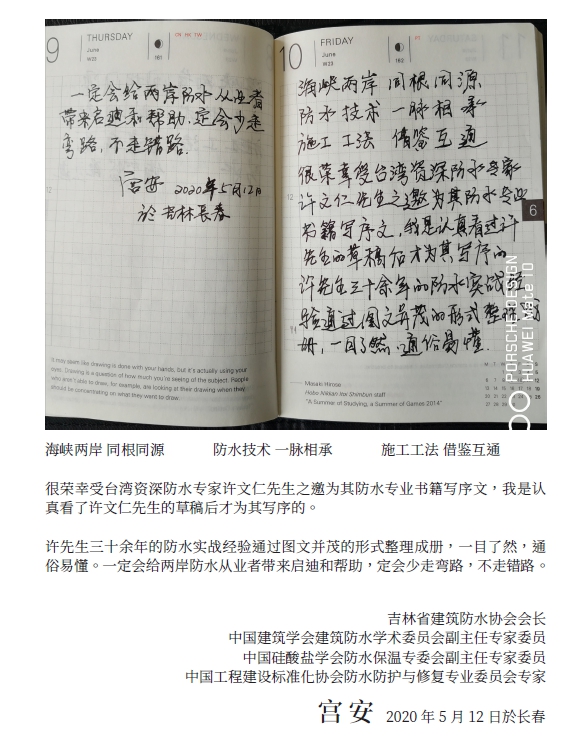 9
THURSDAY
June
W23
161
CN HK TW
一定会给两岸防水从业者
带来启迪和帮助,定会少走
弯路,不走错路.
宫安 2020年5月12日
於吉林長春
It may seem like drawing is done with your hands, but it's actually using your
eyes. Drawing is a question of how much you're seeing of the subject. People
who aren't able to draw, for example, are looking at their drawing when they
should be concentrating on what they want to draw.
10
FRIDAY
June
W23
162
海峡两岸 同根同源
防水技术 一脉相承
施工工法 借鉴互通
很荣幸受台湾资深防水专家
许文仁先生之邀为其防水专业
书籍写序文,我是认真看过许
先生的草稿后才为其写序的
许先生三十余年的防水实战经
验通过图文并茂的形式整理成
册,一目了然,通俗易懂.
12
6
Masako Hirose
Hobo Nikkan Itoi Shimbun staff
"A Summer of Studying, a Summer of Games 2014"
PORSCHE DESIGN
HUAWEI Mate 10
海峡两岸 同根同源 防水技术 一脉相承 施工工法 借鉴互通
很荣幸受台湾资深防水专家许文仁先生之邀为其防水专业书籍写序文,我是认
真看了许文仁先生的草稿后才为其写序的。
许先生三十余年的防水实战经验通过图文并茂的形式整理成册,一目了然,通
俗易懂。一定会给两岸防水从业者带来启迪和帮助,定会少走弯路,不走错路。
吉林省建筑防水协会会长
中国建筑学会建筑防水学术委员会副主任专家委员
中国硅酸盐学会防水保温专委会副主任专家委员
中国工程建设标准化协会防水防护与修复专业委员会专家
宫安 2020 年 5 月 12 日於长春